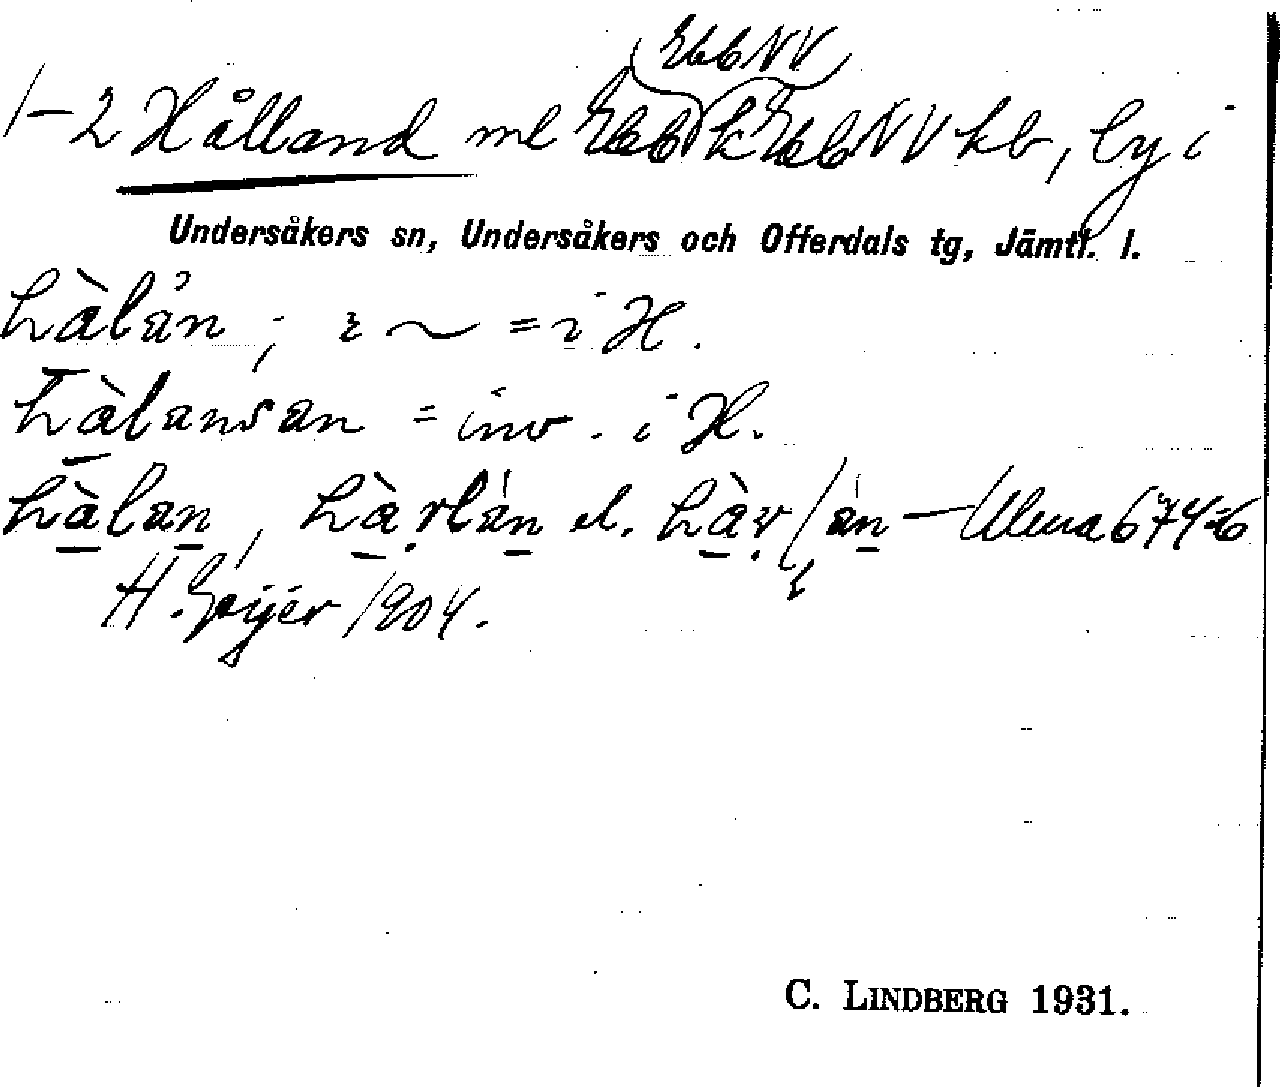 EbbNV
1-2 Hålland ml Ebb k EbbNV kb, by i
Undersåkers sn, Undersåkers och Offerdals tg, Jämtl. l.
hàlan; i ~ = i H.
hàlansan = inv. i H.
hàlan, hàrlan el. hàr/an — 674-6
H. Geijer 1904.
C. LINDBERG 1931.